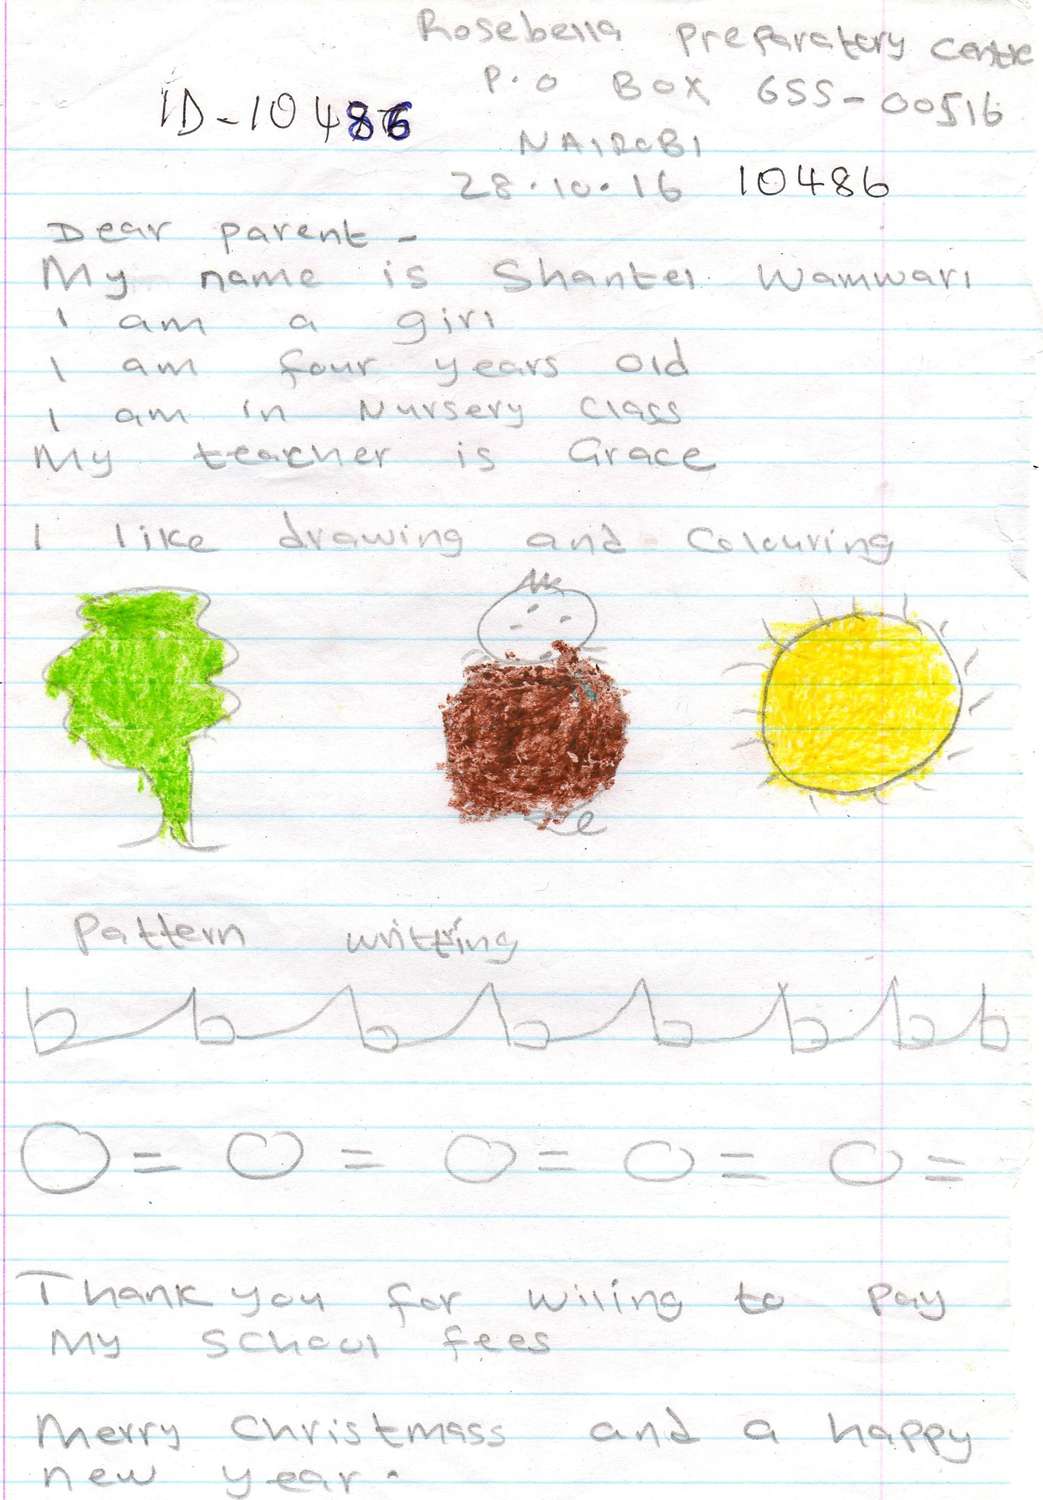 Rosebella preparatory centre
P.O BOX 655-00516
ID-10486
NAIROBI
28.10.16 10486
Dear parent -
My name is Shantel Wamwari
I am a girl
I am four years old
I am in Nursery class
My teacher is Grace
I like drawing and colouring
pattern writting
b b b b b b b b
O = O = O = O = O =
Thank you for wiling to pay
My school fees
Merry christmass and a happy
new year.